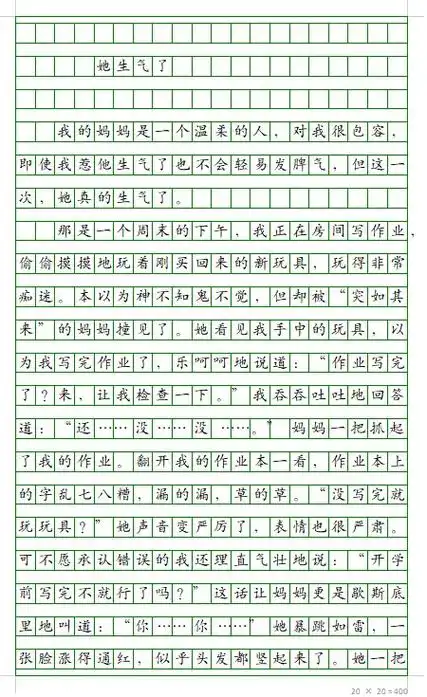 她生气了
我的妈妈是一个温柔的人，对我很包容，
即使我惹他生气了也不会轻易发脾气，但这一
次，她真的生气了。
那是一个周末的下午，我正在房间写作业，
偷偷摸摸地玩着刚买回来的新玩具，玩得非常
痴迷。本以为神不知鬼不觉，但却被“突如其
来”的妈妈撞见了。她看见我手中的玩具，以
为我写完作业了，乐呵呵地说道：“作业写完
了？来，让我检查一下。”我吞吞吐吐地回答
道：“还……没……没……。”妈妈一把抓起
了我的作业。翻开我的作业本一看，作业本上
的字乱七八糟，漏的漏，草的草。“没写完就
玩玩具？”她声音变严厉了，表情也很严肃。
可不愿承认错误的我还理直气壮地说：“开学
前写完不就行了吗？”这话让妈妈更是歇斯底
里地叫道：“你……你……”她暴跳如雷，一
张脸涨得通红，似乎头发都竖起来了。她一把
20 × 20 = 400